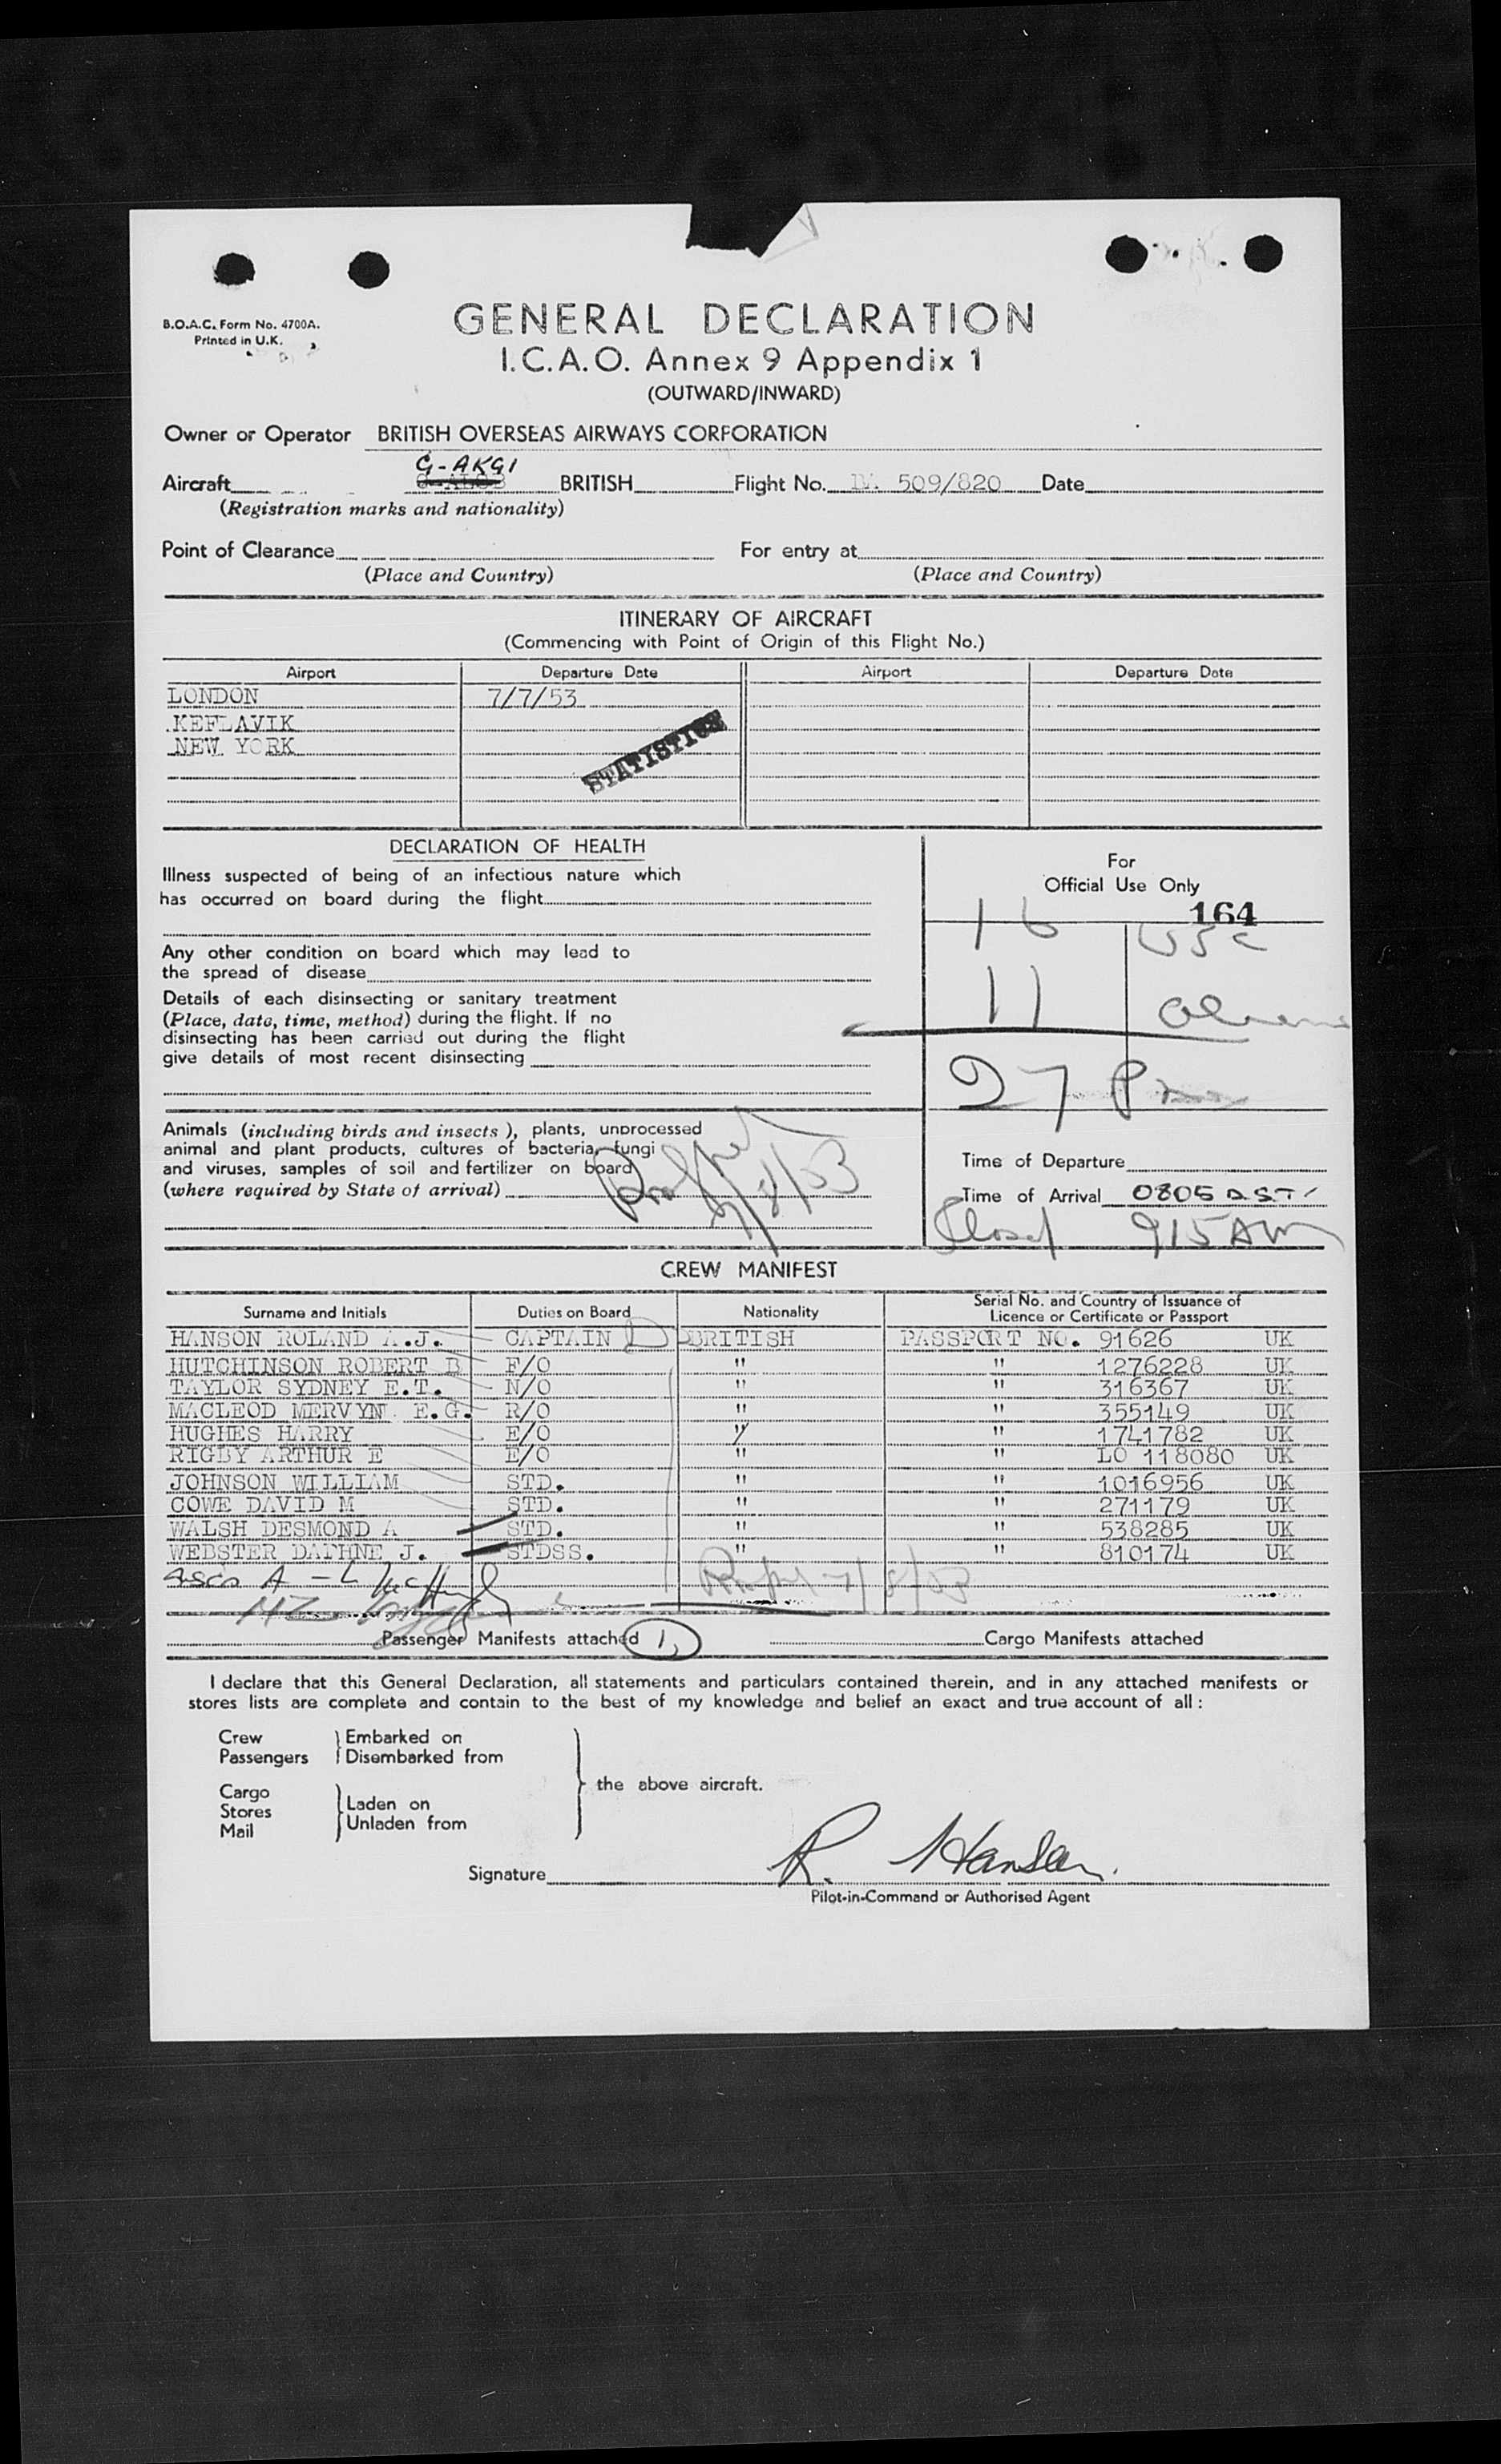 B.O.A.C. Form No. 4700A.
Printed in U.K.
GENERAL DECLARATION
I.C.A.O. Annex 9 Appendix 1
(OUTWARD/INWARD)
Owner or Operator BRITISH OVERSEAS AIRWAYS CORPORATION
G-AKGI
Aircraft BRITISH Flight No. 509/820 Date
(Registration marks and nationality)
Point of Clearance For entry at
(Place and Country) (Place and Country)
ITINERARY OF AIRCRAFT
(Commencing with Point of Origin of this Flight No.)
Airport Departure Date Airport Departure Date
LONDON 7/7/53
KEFLAVIK
NEW YORK
STATISTICS
DECLARATION OF HEALTH
Illness suspected of being of an infectious nature which
has occurred on board during the flight
Any other condition on board which may lead to
the spread of disease
Details of each disinsecting or sanitary treatment
(Place, date, time, method) during the flight. If no
disinsecting has been carried out during the flight
give details of most recent disinsecting
For
Official Use Only
164
16 USC
11
27
Animals (including birds and insects), plants, unprocessed
animal and plant products, cultures of bacteria, fungi
and viruses, samples of soil and fertilizer on board
(where required by State of arrival)
7/8/53
Time of Departure
Time of Arrival 0805 D.S.T.
Closed 915 AM
CREW MANIFEST
Surname and Initials Duties on Board Nationality Serial No. and Country of Issuance of Licence or Certificate or Passport
HANSON ROLAND A.J. CAPTAIN BRITISH PASSPORT NO. 91626 UK
HUTCHINSON ROBERT B F/O " " 1276228 UK
TAYLOR SYDNEY E.T. N/O " " 316367 UK
MACLEOD MERVYN E.G. R/O " " 355149 UK
HUGHES HARRY E/O " " 1741782 UK
RIGBY ARTHUR E E/O " " LO 118080 UK
JOHNSON WILLIAM STD. " " 1016956 UK
COWE DAVID M STD. " " 271179 UK
WALSH DESMOND A STD. " " 538285 UK
WEBSTER DAPHNE J. STDSS. " " 810174 UK
7/8/53
Passenger Manifests attached 1 Cargo Manifests attached
I declare that this General Declaration, all statements and particulars contained therein, and in any attached manifests or
stores lists are complete and contain to the best of my knowledge and belief an exact and true account of all :
Crew Embarked on
Passengers Disembarked from
the above aircraft.
Cargo
Stores Laden on
Mail Unladen from
Signature R. Hanson.
Pilot-in-Command or Authorised Agent